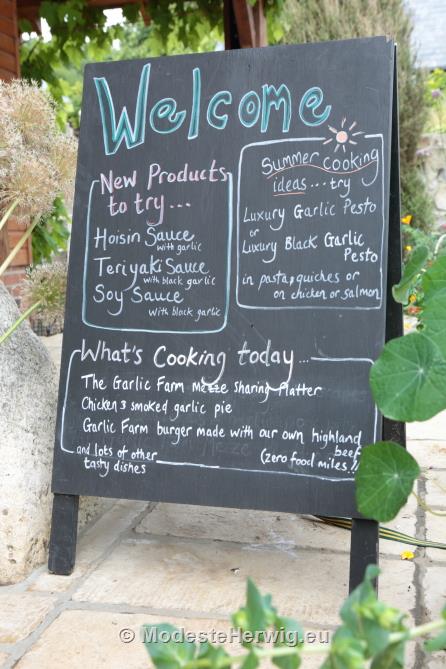 Welcome
New Products
to try...
Hoisin Sauce
with garlic
Teriyaki Sauce
with black garlic
Soy Sauce
with black garlic
Summer cooking
ideas...try
Luxury Garlic Pesto
or
Luxury Black Garlic
Pesto
in pasta, quiches or
on chicken or salmon
What's Cooking today...
The Garlic Farm Mezze sharing Platter
Chicken & smoked garlic pie
Garlic Farm burger made with our own highland
beef
(zero food miles!!)
and lots of other
tasty dishes
© ModesteHerwig.eu